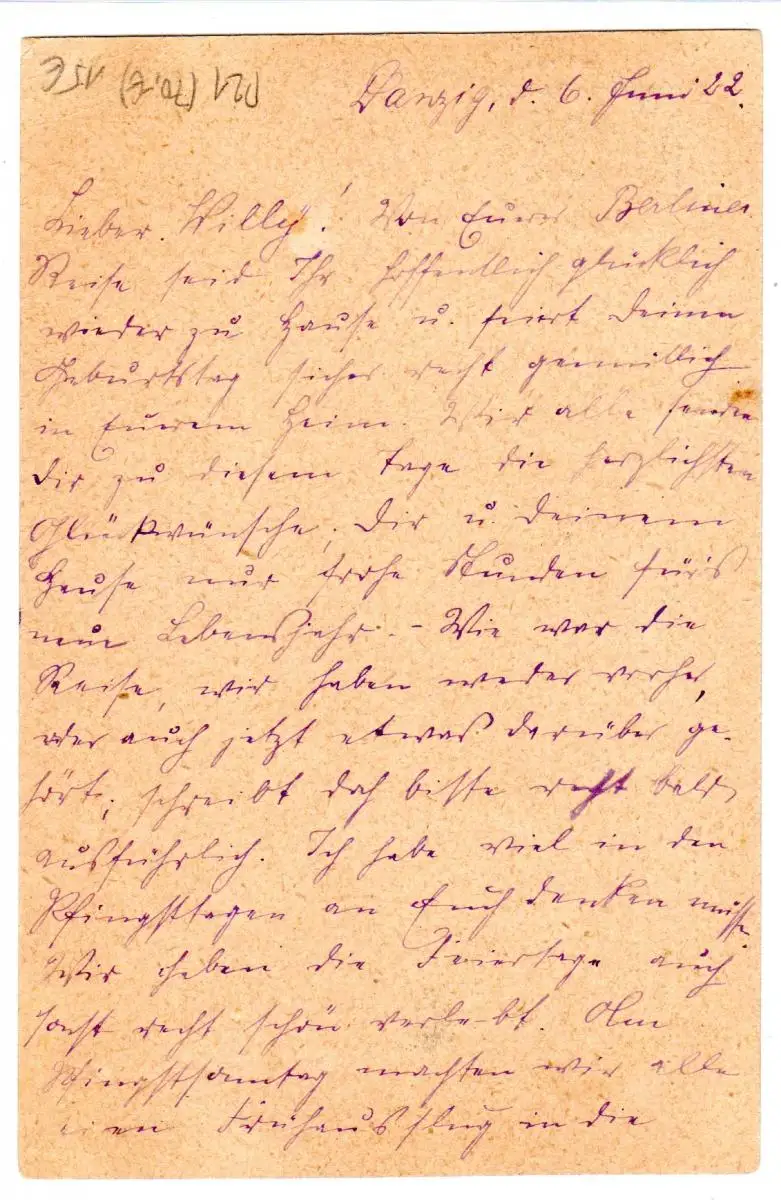 P21 (70.-€) 15€
Danzig, d. 6. Juni 22.
Lieber Willy! Von Eurer Berliner
Reise seid Ihr hoffentlich glücklich
wieder zu Hause u. feiert Deinen
Geburtstag sicher recht gemütlich
in Eurem Heim. Wir alle senden
Dir zu diesem Tage die herzlichsten
Glückwünsche, Dir u. Deinem
Hause nur frohe Stunden für's
neue Lebensjahr. - Wie war die
Reise, wir haben weder vorher,
oder auch jetzt etwas darüber ge-
hört; schreibt doch bitte recht bald
ausführlich. Ich habe viel in den
Pfingsttagen an Euch denken müssen.
Wir haben die Feiertage auch
sonst recht schön verlebt. Am
machten wir alle
einen Frühausflug in die